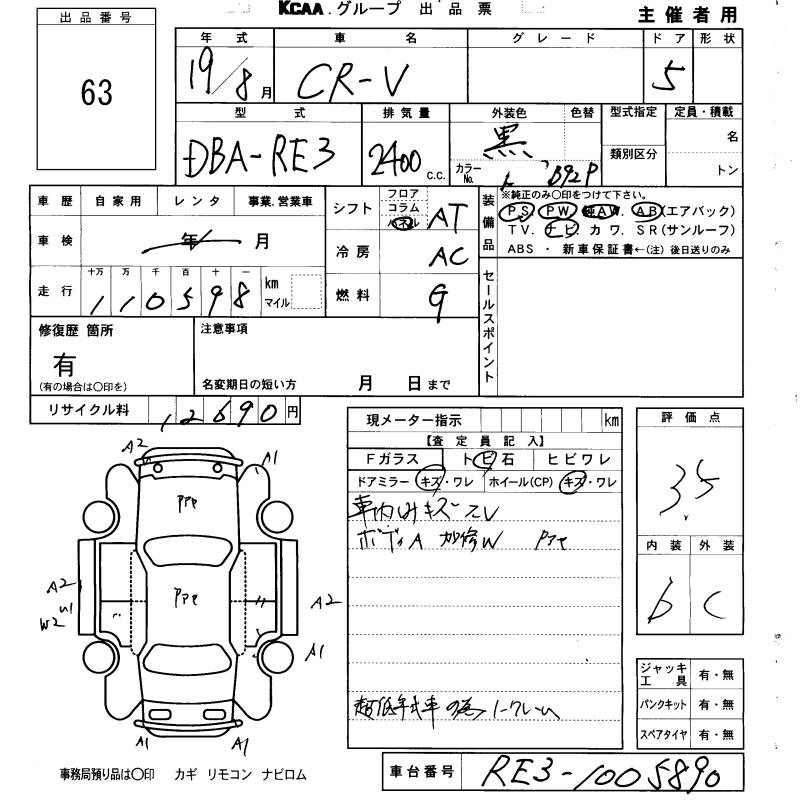 KCAA.グループ 出品票
主催者用
出品番号
63
年式 車名 グレード ドア 形状
19/8月 CR-V 5
型式 排気量 外装色 色替 型式指定 定員・積載
DBA-RE3 2400 c.c. 黒 カラーNo. B92P 類別区分 名
トン
車歴 自家用 レンタ 事業.営業車
車検 年 月
走行 十万 万 千 百 十 一
110598 km マイル
シフト フロア コラム パネル AT
冷房 AC
燃料 G
装備品 ※純正のみ〇印をつけて下さい。
PS. PW. 純AW. AB(エアバック)
TV. ナビ. カワ. SR(サンルーフ)
ABS ・ 新車保証書←(注) 後日送りのみ
セールスポイント
修復歴 箇所
有
(有の場合は〇印を)
注意事項
名変期日の短い方 月 日まで
リサイクル料 12690円
現メーター指示 km
【査定員記入】
Fガラス トビ石 ヒビワレ
ドアミラー キズ・ワレ ホイール(CP) キズ・ワレ
車内シミキズ
ボディA 加修W PPe
超低年式車の為ノークレーム
評価点
3.5
内装 外装
b C
ジャッキ工具 有・無
パンクキット 有・無
スペアタイヤ 有・無
A2
A1
PPe
A2
U1
W2
PPe
A2
A1
A1
A1
事務局預り品は〇印 カギ リモコン ナビロム
車台番号 RE3-1005890